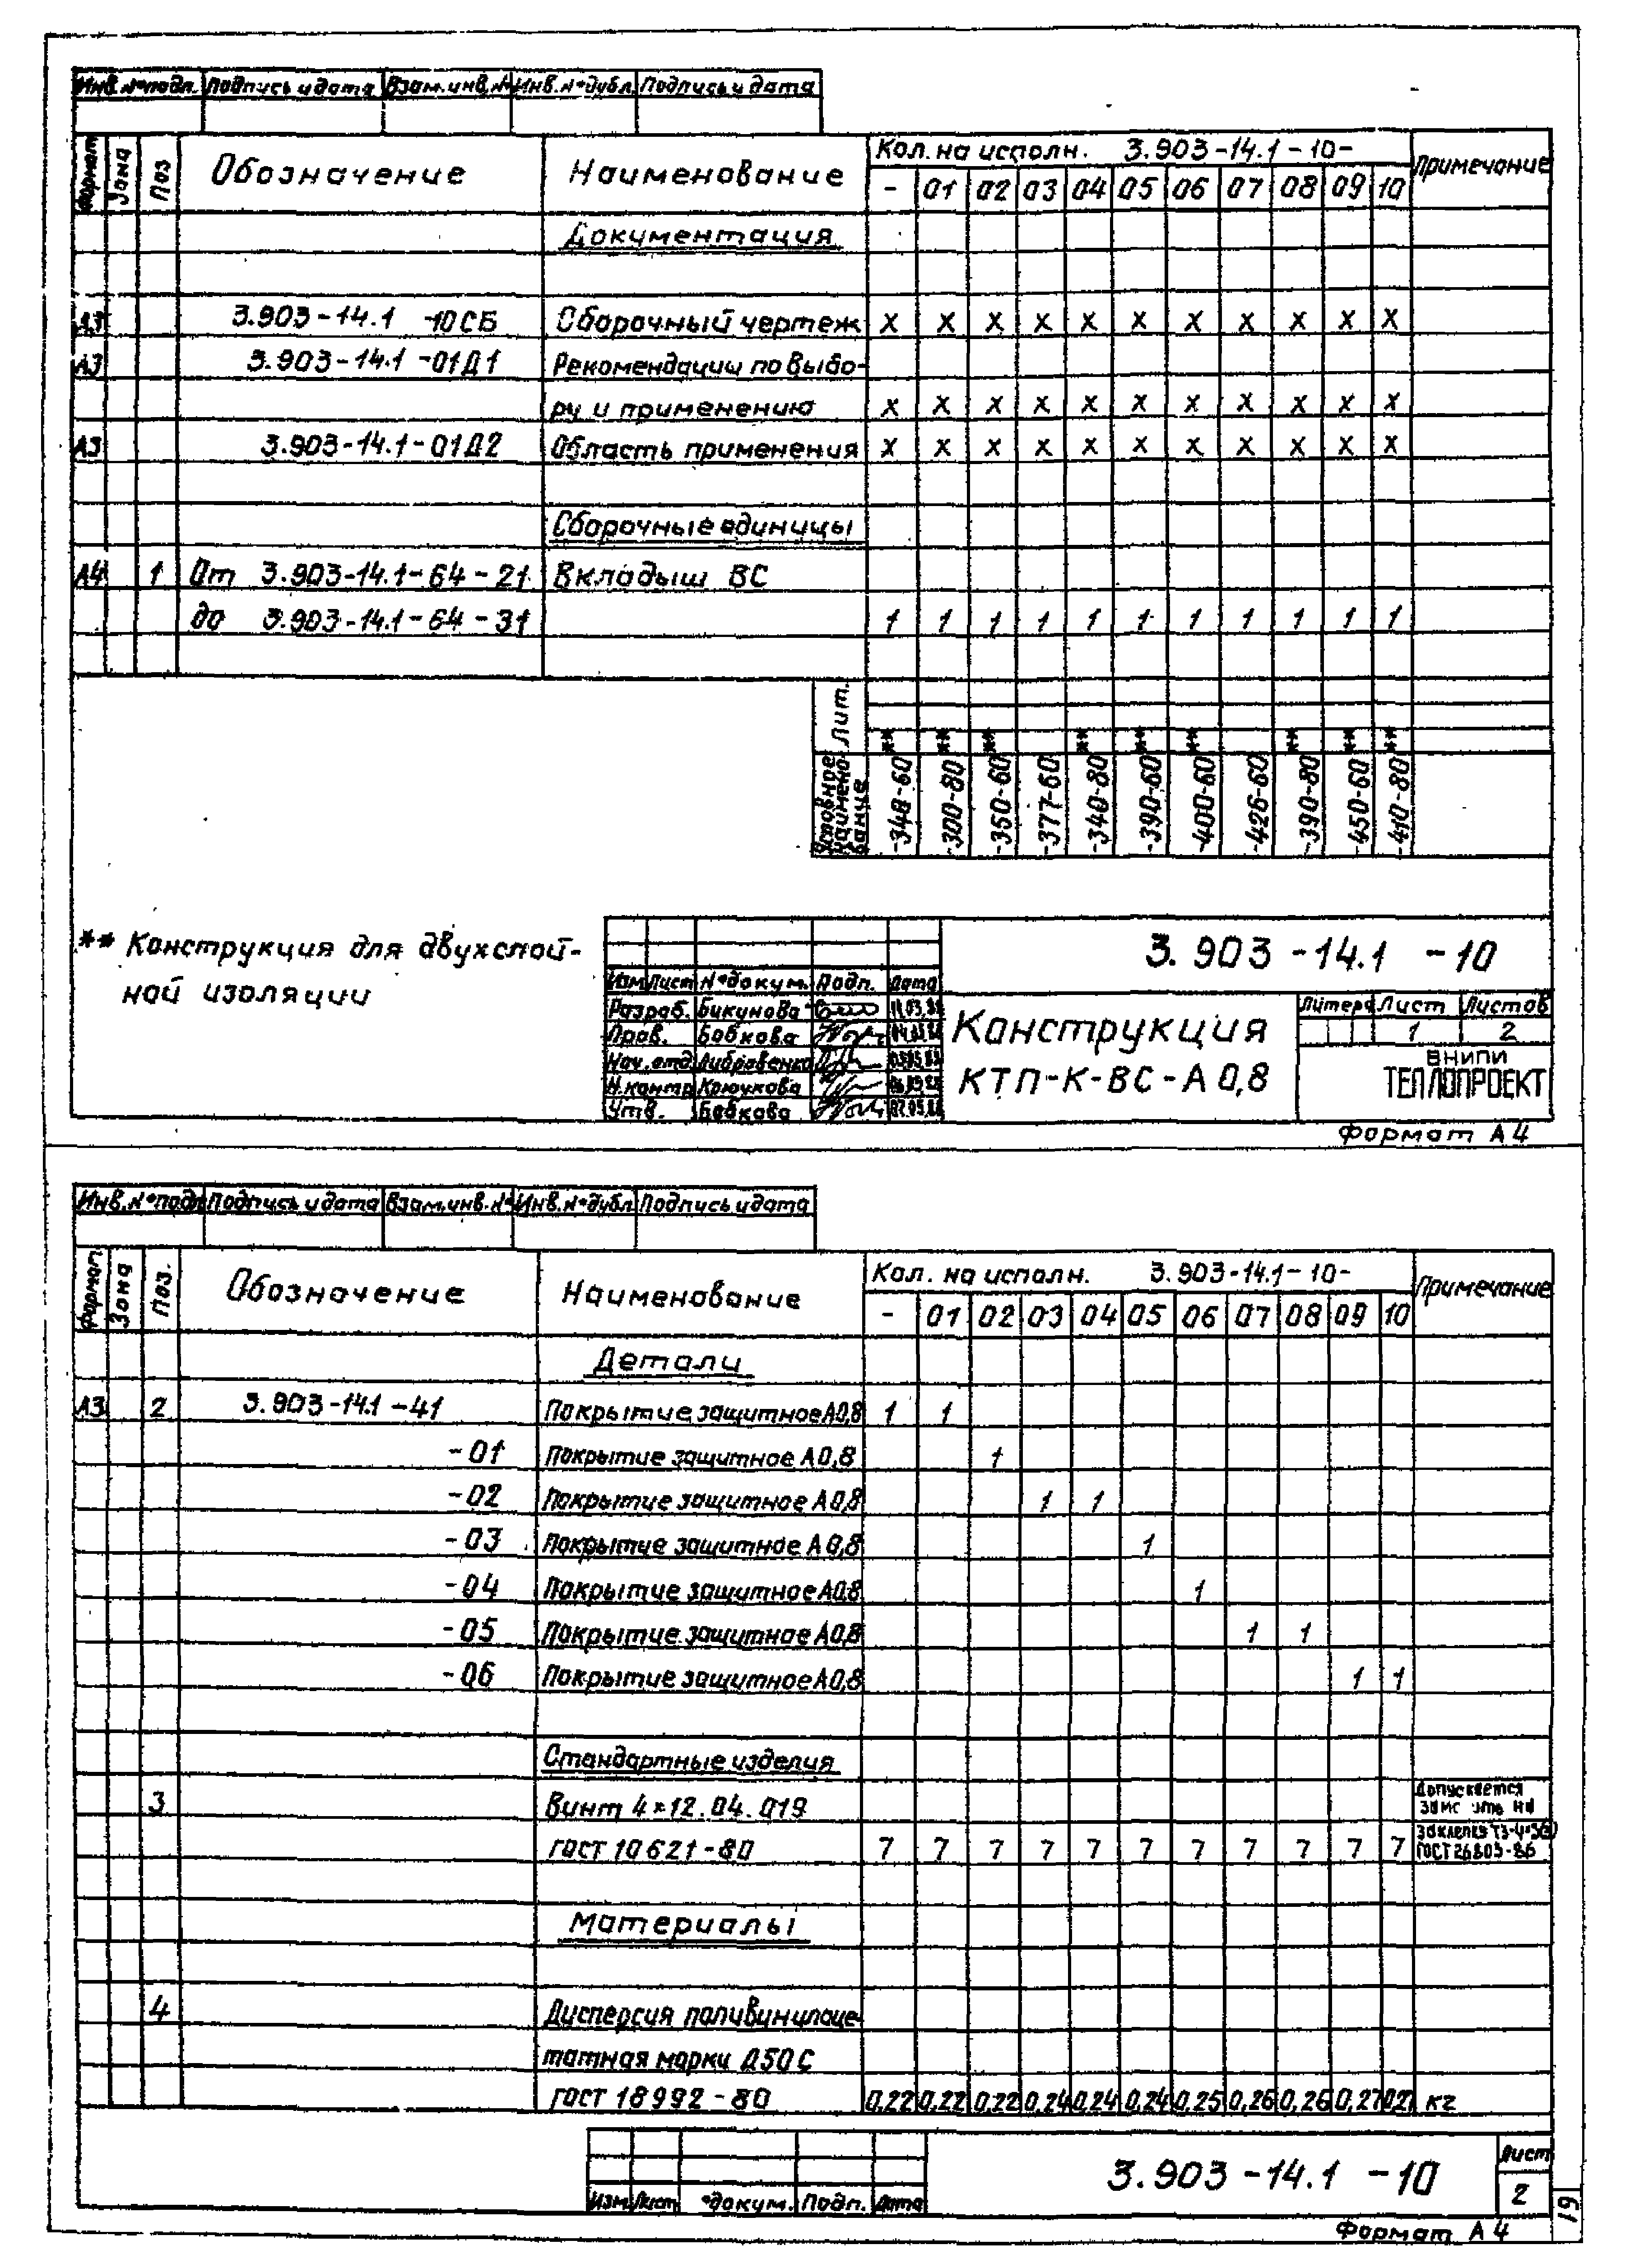 Инв.№подл. Подпись и дата Взам.инв.№ Инв.№дубл. Подпись и дата
Формат Зона Поз Обозначение Наименование Кол. на исполн. 3.903-14.1-10- Примечание
- 01 02 03 04 05 06 07 08 09 10
Документация
А3 3.903-14.1 -10СБ Сборочный чертеж X X X X X X X X X X X
А3 3.903-14.1-01Д1 Рекомендации по выбо-
ру и применению X X X X X X X X X X X
А3 3.903-14.1-01Д2 Область применения X X X X X X X X X X X
Сборочные единицы
А4 1 От 3.903-14.1-64-21 Вкладыш ВС
до 3.903-14.1-64-31 1 1 1 1 1 1 1 1 1 1 1
Лит.
** ** ** ** ** ** ** ** **
Условное наименование -348-60 -300-80 -360-60 -377-60 -340-80 -390-60 -400-60 -426-60 -390-80 -450-60 -410-80
** Конструкция для двухслой-
ной изоляции
3.903-14.1 -10
Изм Лист №докум. Подп. Дата
Разраб. Бикунова
Пров. Бобкова
Нач.отд.
Н.контр Крючкова
Утв. Бобкова
Конструкция
КТП-К-ВС-А 0,8
Литера Лист Листов
1 2
ВНИПИ
ТЕПЛОПРОЕКТ
Формат А4
Инв.№подл Подпись и дата Взам.инв.№ Инв.№дубл Подпись и дата
Формат Зона Поз. Обозначение Наименование Кол. на исполн. 3.903-14.1-10- Примечание
- 01 02 03 04 05 06 07 08 09 10
Детали
А3 2 3.903-14.1-41 Покрытие защитное А0,8 1 1
-01 Покрытие защитное А0,8 1
-02 Покрытие защитное А0,8 1 1
-03 Покрытие защитное А0,8 1
-04 Покрытие защитное А0,8 1
-05 Покрытие защитное А0,8 1 1
-06 Покрытие защитное А0,8 1 1
Стандартные изделия
3 Винт 4×12.04.019 Допускается
ГОСТ 10621-80 7 7 7 7 7 7 7 7 7 7 7 ГОСТ 26805-86
Материалы
4 Дисперсия поливинилаце-
татная марки Д50С
ГОСТ 18992-80 0,22 0,22 0,22 0,24 0,24 0,24 0,25 0,26 0,26 0,27 0,27 кг
Изм Лист докум. Подп. Дата
3.903-14.1 -10
Лист
2
19
Формат А4